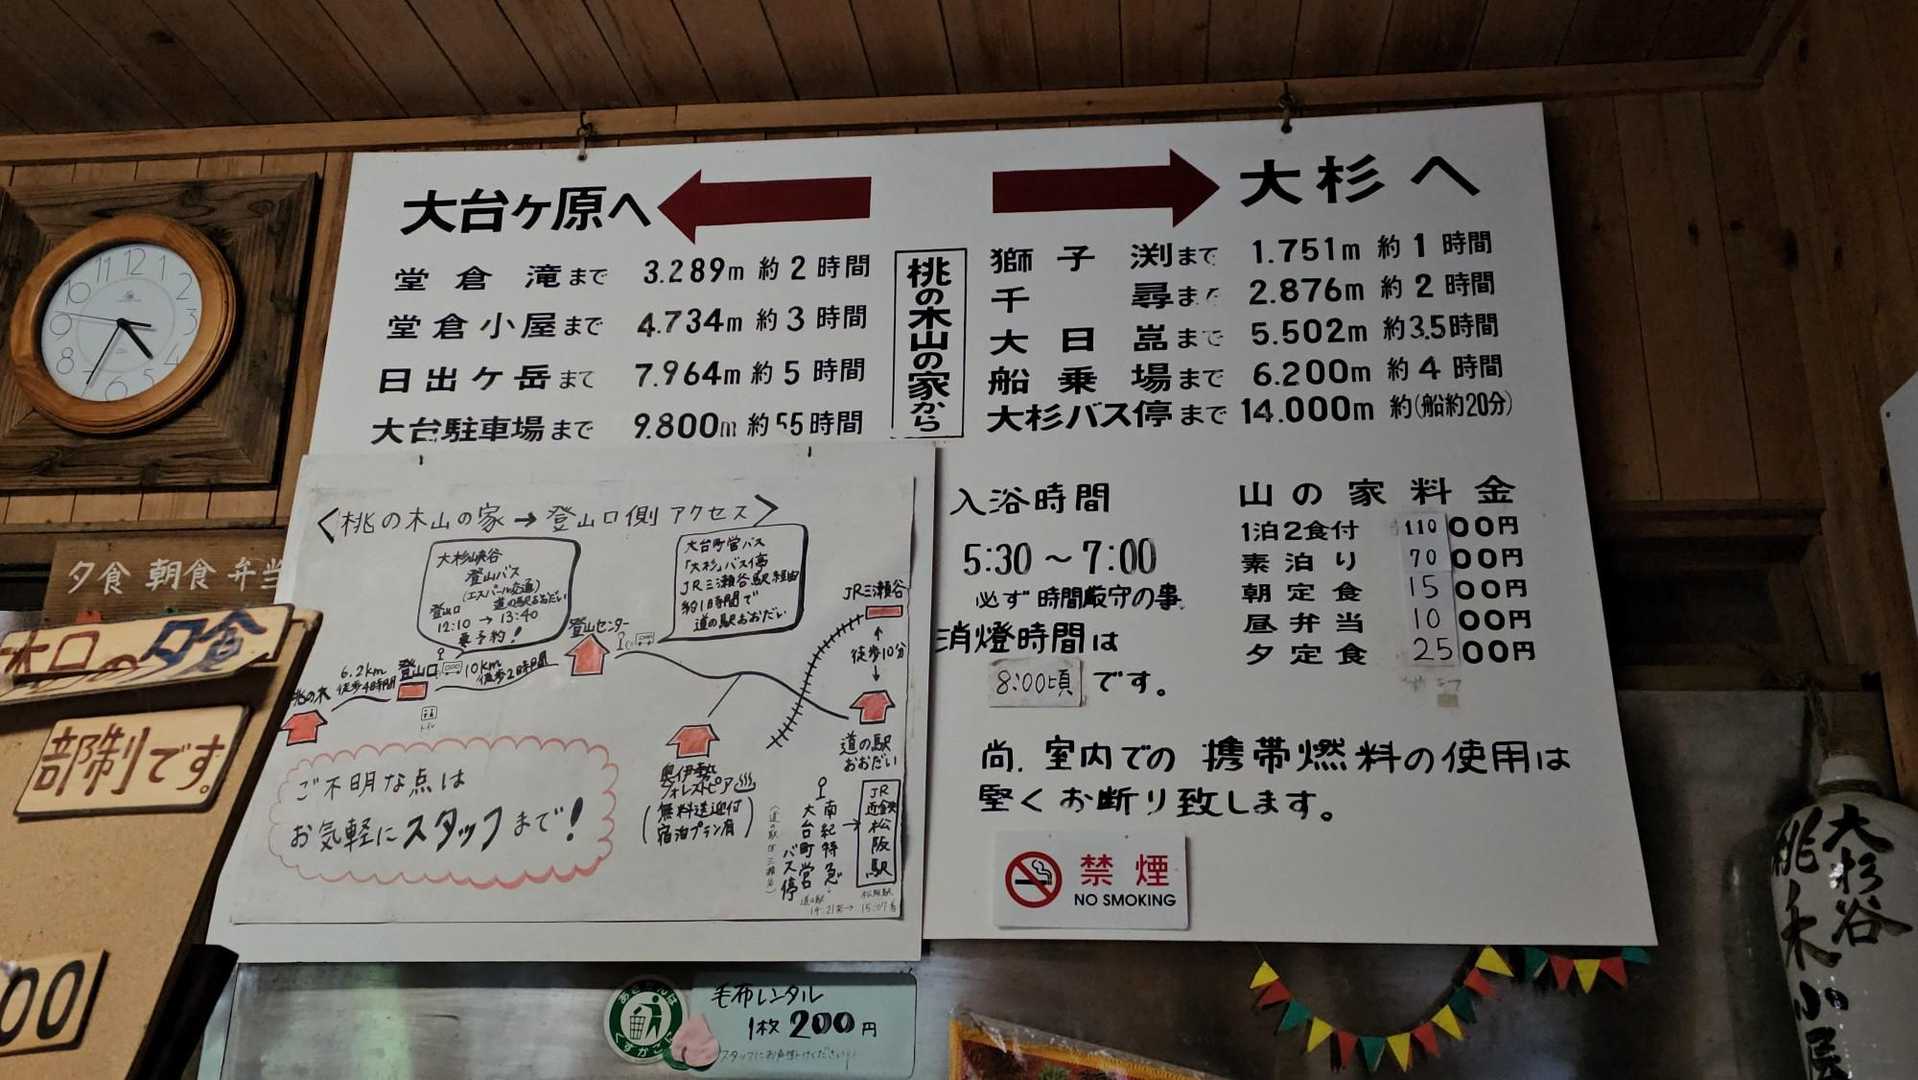 大台ヶ原へ
堂倉滝まで 3.289m 約2時間
堂倉小屋まで 4.734m 約3時間
日出ヶ岳まで 7.964m 約5時間
大台駐車場まで 9.800m 約55時間
桃の木山の家から
大杉へ
獅子渕まで 1.751m 約1時間
千尋まで 2.876m 約2時間
大日嵓まで 5.502m 約3.5時間
船乗場まで 6.200m 約4時間
大杉バス停まで 14.000m 約(船約20分)
入浴時間
5:30～7:00
必ず時間厳守の事
消燈時間は
8:00頃です。
山の家料金
1泊2食付 11000円
素泊り 7000円
朝定食 1500円
昼弁当 1000円
夕定食 2500円
尚、室内での携帯燃料の使用は
堅くお断り致します。
禁煙
NO SMOKING
〈桃の木山の家→登山口側アクセス〉
大杉峡谷
登山バス
(エスパール交通)
登山口 道の駅おおだい
12:10 → 13:40
要予約!
大台町営バス
「大杉」バス停
JR三瀬谷駅経由
約1時間で
道の駅おおだい
JR三瀬谷
徒歩10分
登山センター
桃の木
6.2km
徒歩4時間
登山口
10km
徒歩2時間
トイレ
道の駅
おおだい
奥伊勢
フォレストピア
(無料送迎付
宿泊プラン有)
南紀特急・
大台町営
バス停
JR
近鉄
松阪駅
道の駅 松阪駅
14:21発→15:07着
ご不明な点は
お気軽にスタッフまで!
12
1
2
3
4
5
6
7
8
9
10
11
夕食 朝食 弁当
本日の夕食
部制です。
00
くずかご
毛布レンタル
1枚200円
大杉谷
桃木小屋